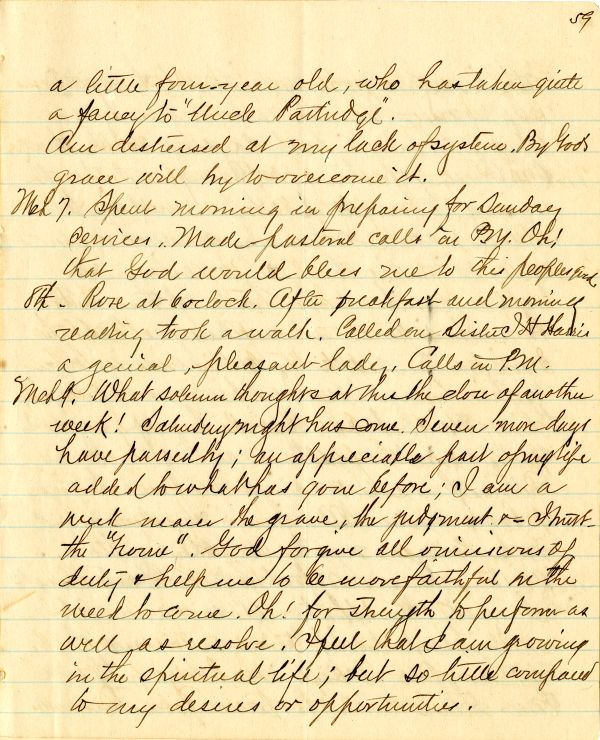 59
a little four-year old, who has taken quite
a fancy to "Uncle Partridge".
Am distressed at my lack of system. By God's
grace will try to overcome it.
Mch 7. Spent morning in preparing for Sunday
services. Made pastoral calls in P.M. Oh!
that God would bless me to this peoples good.
8th - Rose at 6 oclock. After breakfast and morning
reading took a walk. Called on Sister J H Harris
a genial, pleasant lady. Calls in P.M.
Mch 9. What solemn thoughts at this the close of another
week! Saturday night has come. Seven more days
have passed by; an appreciable part of my life
added to what has gone before; I am a
week nearer the grave, the judgment & - I trust -
the "home". God forgive all omissions of
duty & help me to be more faithful in the
week to come. Oh! for strength to perform as
well as resolve. I feel that I am growing
in the spiritual life; but so little compared
to my desires or opportunities.